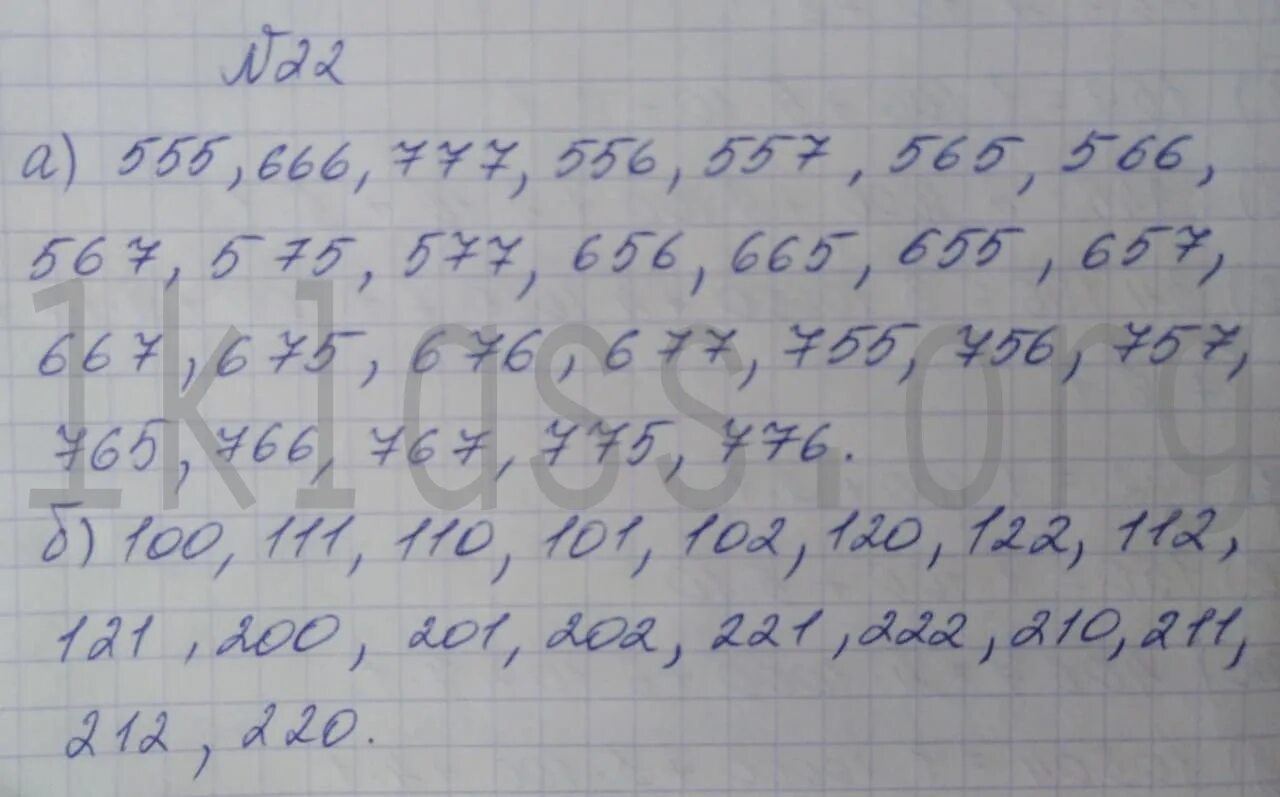 №22
а) 555, 666, 777, 556, 557, 565, 566,
567, 575, 577, 656, 665, 655, 657,
667, 675, 676, 677, 755, 756, 757,
765, 766, 767, 775, 776.
1klass.org
б) 100, 111, 110, 101, 102, 120, 122, 112,
121, 200, 201, 202, 221, 222, 210, 211,
212, 220.